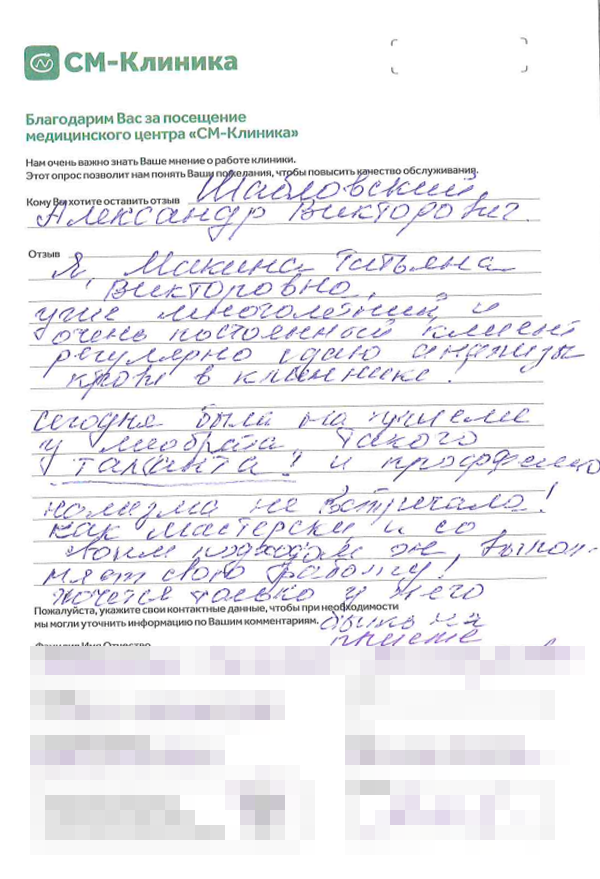 СМ-Клиника
Благодарим Вас за посещение
медицинского центра «СМ-Клиника»
Нам очень важно знать Ваше мнение о работе клиники.
Этот опрос позволит нам понять Ваши пожелания, чтобы повысить качество обслуживания.
Кому Вы хотите оставить отзыв Шабловский
Александр Викторович.
Отзыв Я, Макина Татьяна
Викторовна,
уже многолетний и
очень постоянный клиент
регулярно сдаю анализы
крови в клиннике!
Сегодня была на приеме
у медбрата такого
таланта! и проффессио
нализма не встречала!
как мастерски и со
своим подходом он выпол-
няет свою работу!
хочется только у него
Пожалуйста, укажите свои контактные данные, чтобы при необходимости
мы могли уточнить информацию по Вашим комментариям. быть на
приеме
Фамилия Имя Отчество